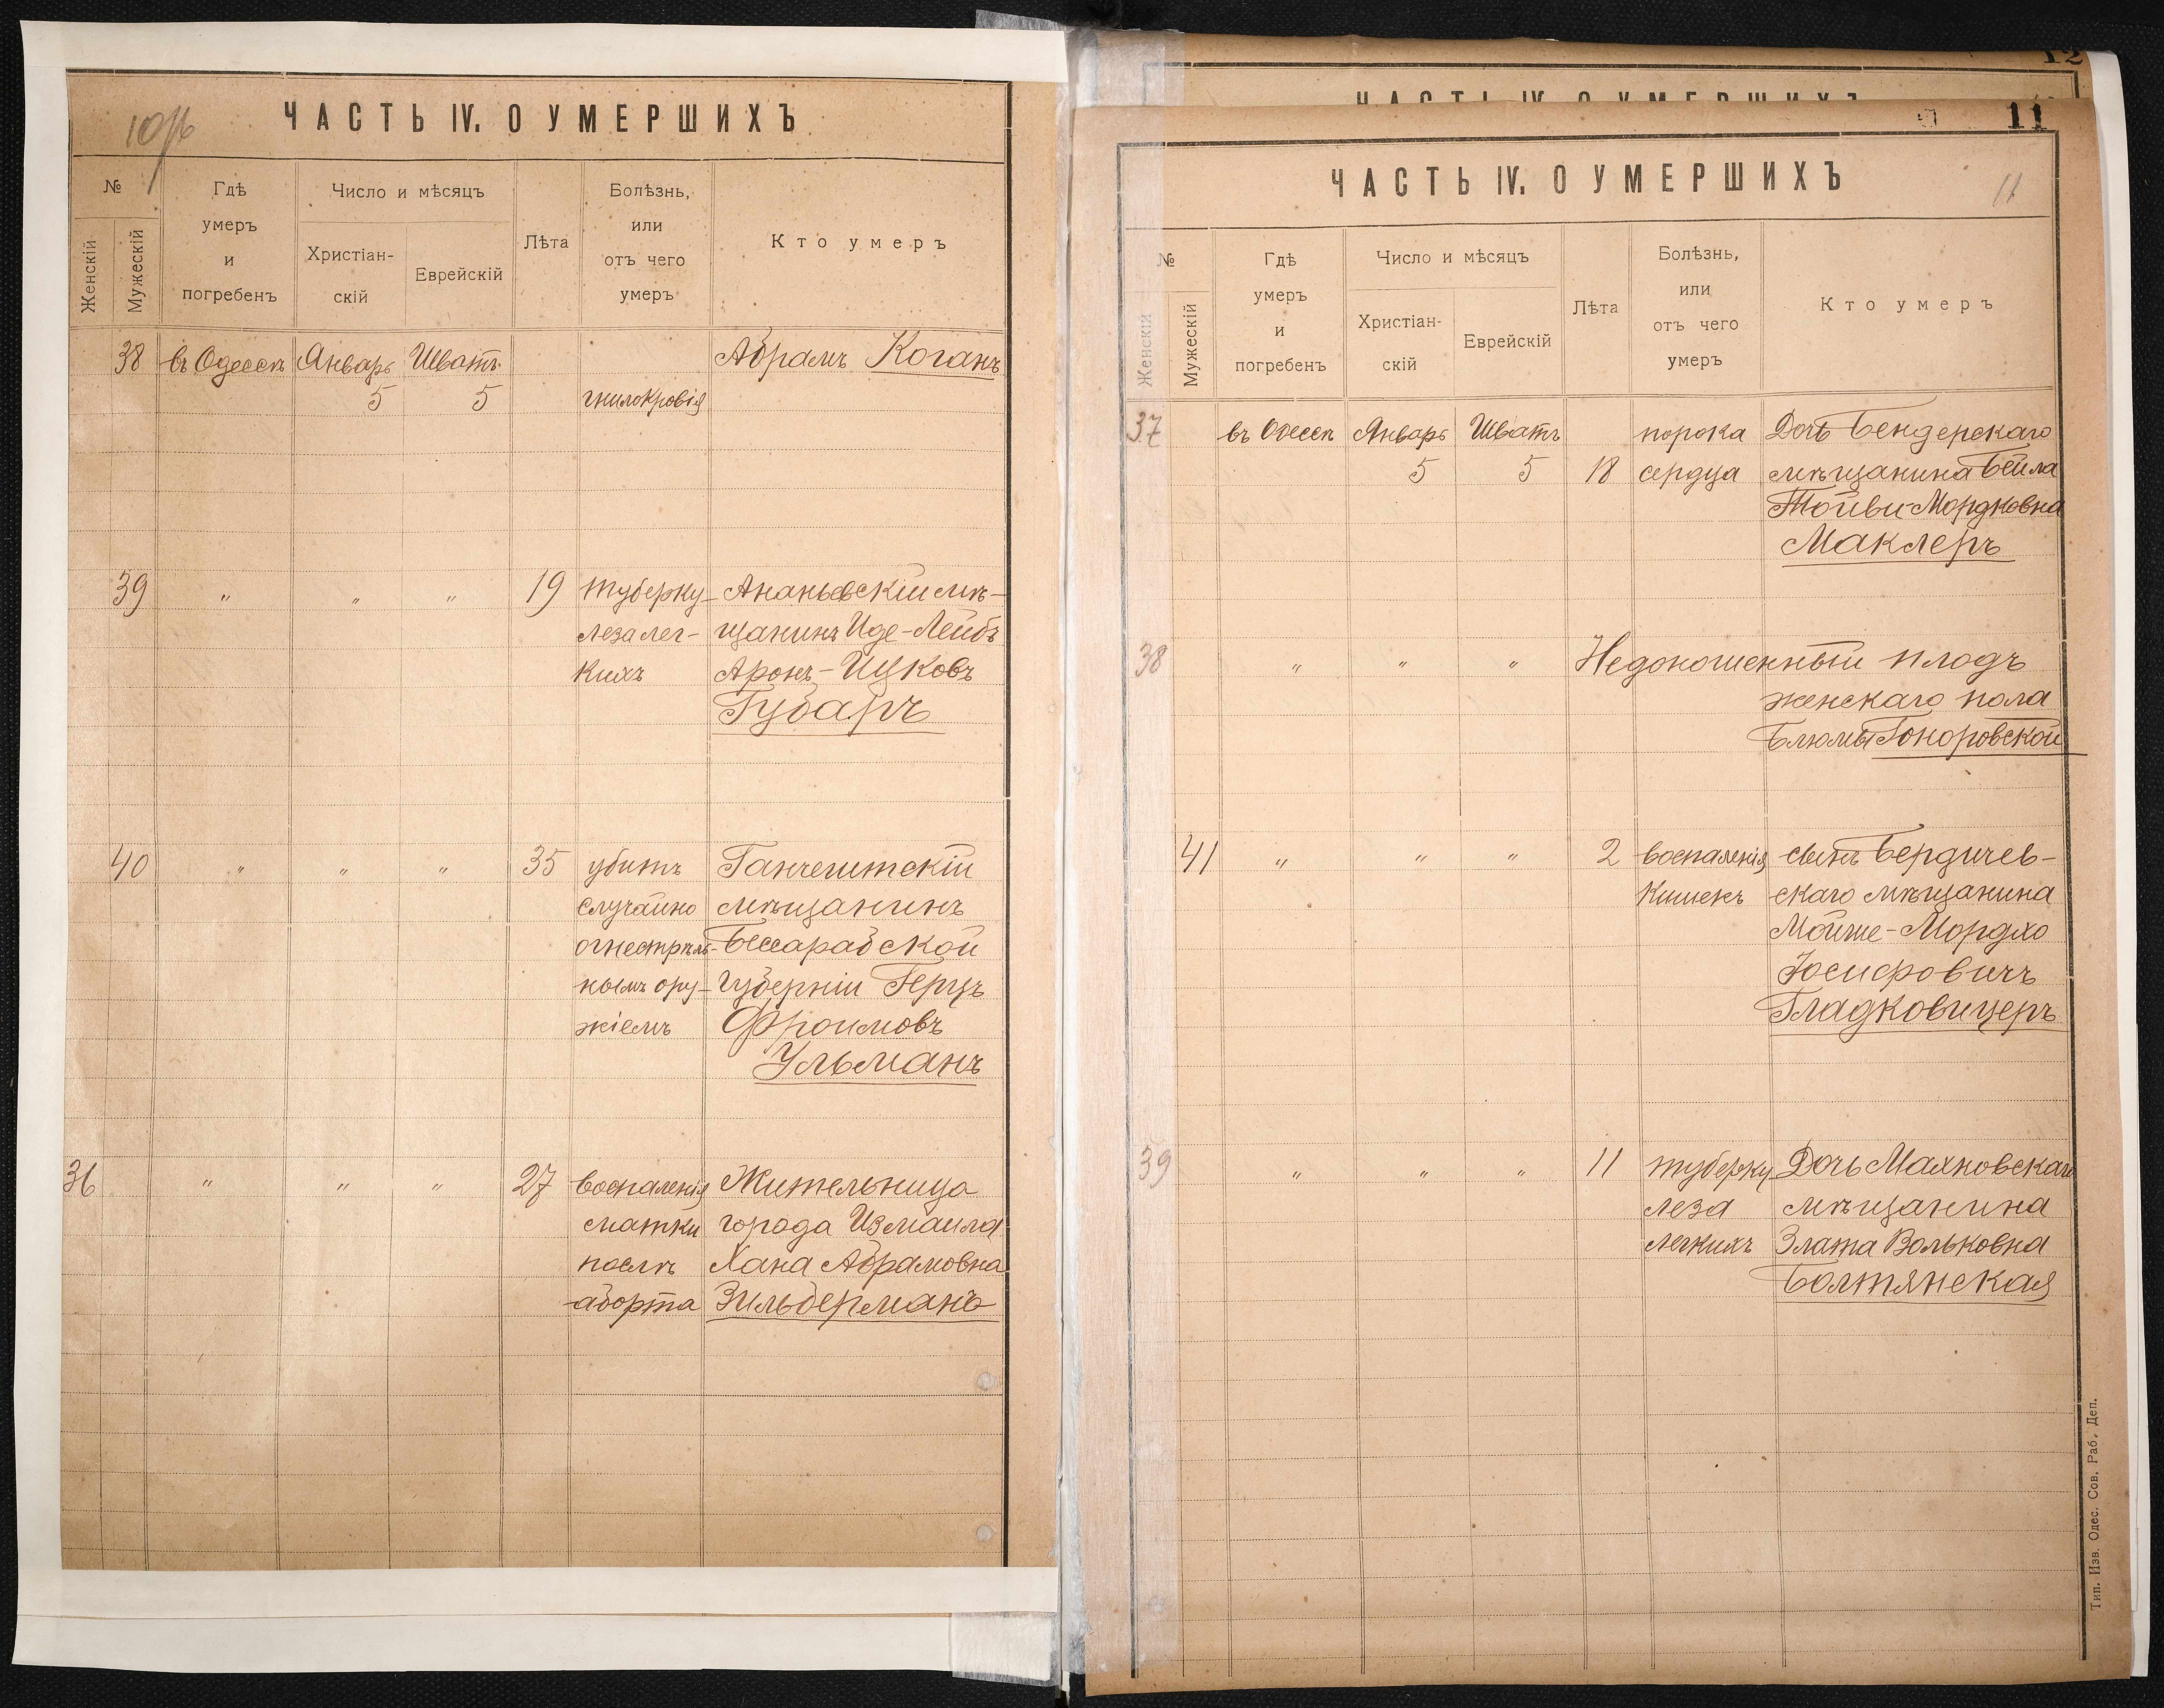 ЧАСТЬ IV. О УМЕРШИХЪ
№
Женскій
Мужескій
Гдѣ
умеръ
и
погребенъ
Число и мѣсяцъ
Христіан-
скій
Еврейскій
Лѣта
Болѣзнь,
или
отъ чего
умеръ
Кто умеръ
38 въ Одессѣ Январь Шватъ Абрамъ Коганъ
5 5 гнилокровія
39 " " " 19 туберку- Ананьевскій мѣ-
леза лег- щанинъ Иде-Лейбъ
кихъ Аронъ-Ицковъ
Губаръ
40 " " " 35 убитъ Ганчештскій
случайно мѣщанинъ
огнестрѣль- Бессарабской
нымъ ору- губерніи Герцъ
жіемъ Фроимовъ
Ульманъ
36 " " " 27 воспаленія Жительница
матки города Измаила
послѣ Хана Абрамовна
аборта Зильберманъ
12
ЧАСТЬ IV. О УМЕРШИХЪ
11
ЧАСТЬ IV. О УМЕРШИХЪ
11
№
Женскій
Мужескій
Гдѣ
умеръ
и
погребенъ
Число и мѣсяцъ
Христіан-
скій
Еврейскій
Лѣта
Болѣзнь,
или
отъ чего
умеръ
Кто умеръ
37 въ Одессѣ Январь Шватъ порока Дочь Бендерскаго
5 5 18 сердца мѣщанина Бейла
Тойви-Мордковна
Маклеръ
38 " " " Недоношенный плодъ
женскаго пола
Блюмы Гоноровской
41 " " " 2 воспаленія сынъ Бердичев-
кишекъ скаго мѣщанина
Мойше-Мордхо
Іосифовичъ
Гладковицеръ
39 " " " 11 туберку- Дочь Махновскаго
леза мѣщанина
легкихъ Злата Вольковна
Болтянская
Тип. Изв. Одес. Сов. Раб. Деп.